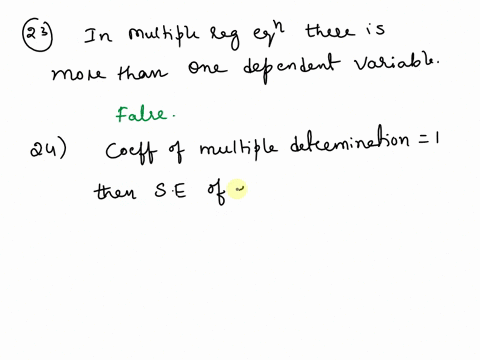 23) In multiple Reg eqⁿ there is
more than one dependent variable.
False.
24) Coeff of multiple determination = 1
then S.E of